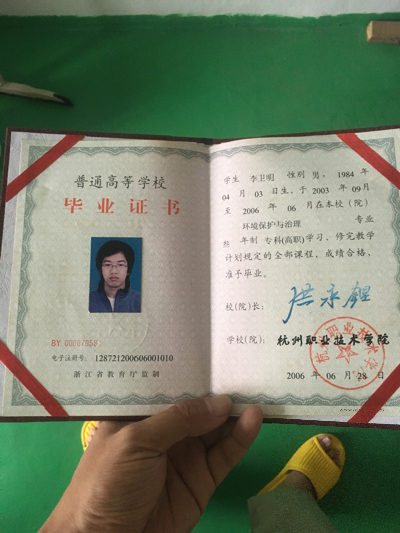 普通高等学校
毕业证书
BY 00087959
电子注册号: 128721200606001010
浙江省教育厅监制
学生 李卫明 性别 男, 1984
年 04 月 03 日生, 于 2003 年 09 月
至 2006 年 06 月在本校(院)
环境保护与治理 专业
叁 年制 专科(高职)学习, 修完教学
计划规定的全部课程, 成绩合格,
准予毕业。
校(院)长:
学校(院): 杭州职业技术学院
2006 年 06 月 28 日